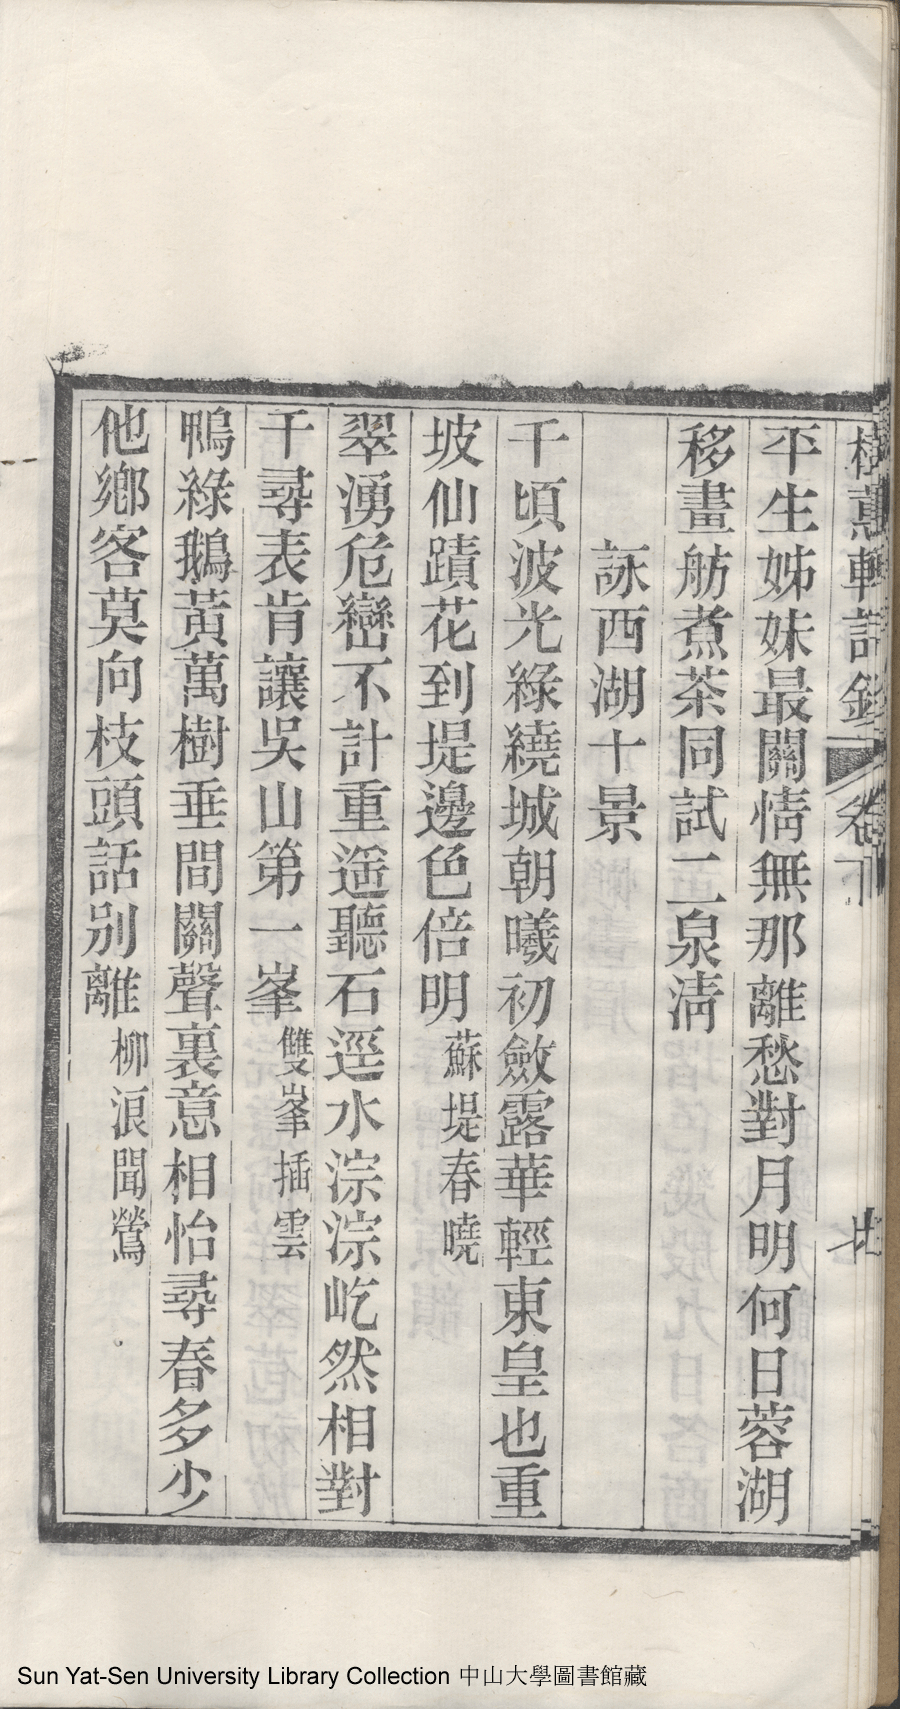 樹蕙軒詩鈔 卷下
平生姊妹最關情無那離愁對月明何日蓉湖
移畫舫煮茶同試二泉淸
詠西湖十景
千頃波光綠繞城朝曦初斂露華輕東皇也重
坡仙蹟花到堤邊色倍明 蘇堤春曉
翠湧危巒不計重遥聽石逕水淙淙屹然相對
千尋表肯讓吳山第一峯 雙峯插雲
鴨綠鵝黃萬樹垂間關聲裏意相怡尋春多少
他鄉客莫向枝頭話別離 柳浪聞鶯
Sun Yat-Sen University Library Collection 中山大學圖書館藏